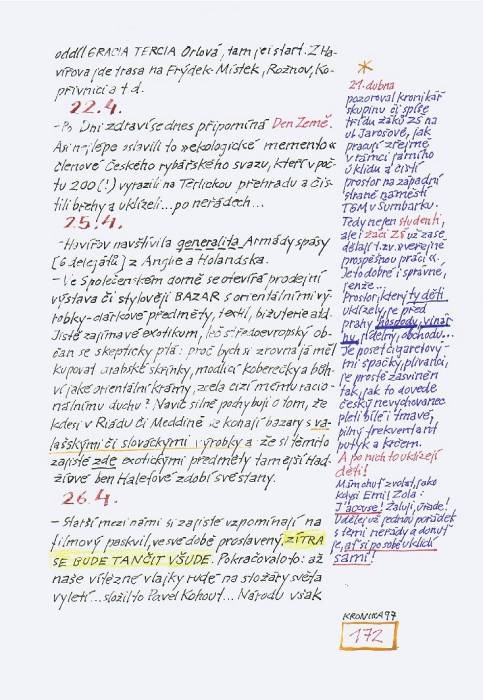 oddíl GRACIA TERCIA Orlová, tam je i start. Z Ha-
vířova jde trasa na Frýdek-Místek, Rožnov, Ko-
přivnici a t d.
22.4.
– Po Dni zdraví se dnes připomíná Den Země.
Asi nejlépe oslavili to »ekologické memento«
členové Českého rybářského svazu, kteří v poč-
tu 200 (!) vyrazili na Těrlickou přehradu a čis-
tili břehy a uklízeli...po neřádech...
25.4.
– Havířov navštívila generalita Armády spásy
[6 delegátů] z Anglie a Holandska.
– Ve Společenském domě se otevírá prodejní
výstava či stylověji BAZAR s orientálními vý-
robky – dárkové předměty, textil, bižuterie atd.
Jistě zajímavé exotikum, leč středoevropský ob-
čan se skepticky ptá: proč bych si zrovna já měl
kupovat arabské skříňky, modlicí koberečky a
ví jaké orientální krámy, zcela cizí mému racio-
nálnímu duchu? Navíc silně pochybuji o tom, že
kdesi v Riádu či Meddině se konají bazary s va-
lašskými či slováckými výrobky a že si těmito
zajisté zde exotickými předměty tamější Had-
žiové ben Halefové zdobí své stany.
26.4.
– Starší mezi námi si zajisté vzpomínají na
filmový paskvil, ve své době proslavený, ZÍTRA
SE BUDE TANČIT VŠUDE. Pokračovalo to: až
naše vítězné vlajky rudé na stožáry světa
vyletí...složil to Pavel Kohout... Národu však
21. dubna
pozoroval kronikář
skupinu či spíše
třídu žáků ZŠ na
ul. Jarošové, jak
pracují zřejmě
v rámci jarního
úklidu a čistí
prostor na západní
straně náměstí
TGM v Šumbarku.
Tedy nejen studenti,
ale i žáci ZŠ už zase
dělají t.zv. »veřejně
prospěšnou práci«.
Je to dobré i správné,
jenže...
Prostor, který ty děti
uklízely, je před
prahy hospody, vinár-
ny, jídelny, obchodu...
Je poset cigaretový-
mi špačky, plivanci,
je prostě zasviněn
tak, jak to dovede
český nevychovanec
pleti bílé i tmavé,
pilný frekventant
putyk a krčem.
A po nich to uklízejí
děti!
Mám chuť zvolat, jako
kdysi Emil Zola:
J'accuse! Žaluji, úřade!
Udělej už jednou pořádek
s těmi nerády a donuť
je, ať si po sobě uklidí
sami!
KRONIKA 97
172